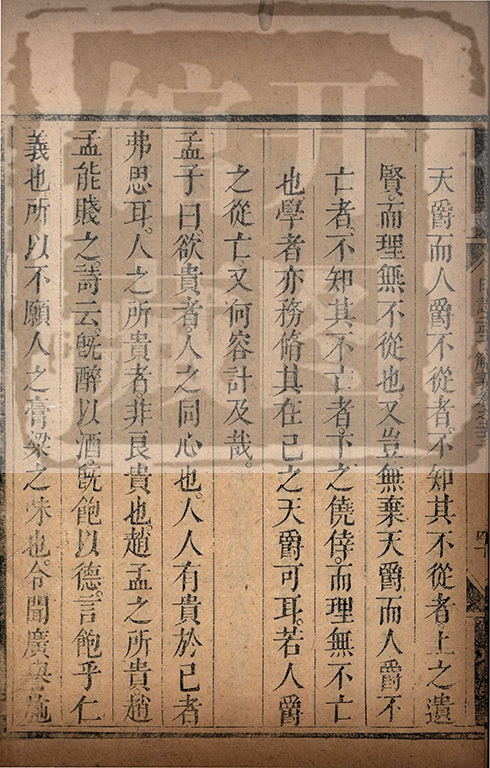 天爵而人爵不從者不知其不從者上之遺
賢而理無不從也又豈無棄天爵而人爵不
亡者不知其不亡者下之僥倖而理無不亡
也學者亦務脩其在己之天爵可耳若人爵
之從亡又何容計及哉
孟子曰欲貴者人之同心也人人有貴於己者
弗思耳人之所貴者非良貴也趙孟之所貴趙
孟能賤之詩云旣醉以酒旣飽以德言飽乎仁
義也所以不願人之膏粱之味也令聞廣譽施